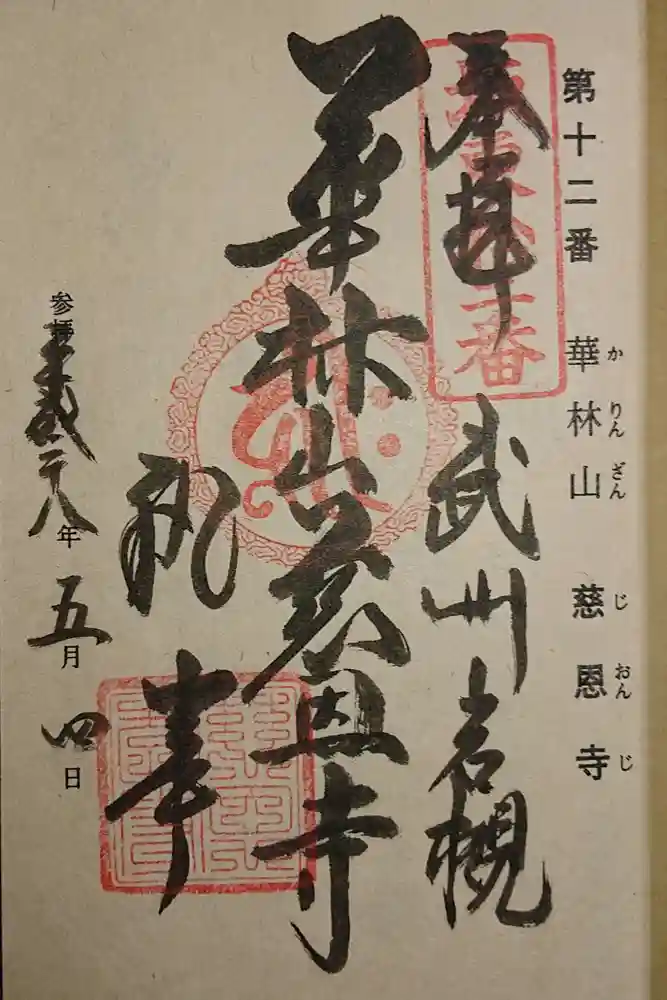 第十二番 華林山 慈恩寺
か りん ざん じ おん じ
奉拝 武州岩槻
華林山慈恩寺
参拝 平成二八年 五月 四日